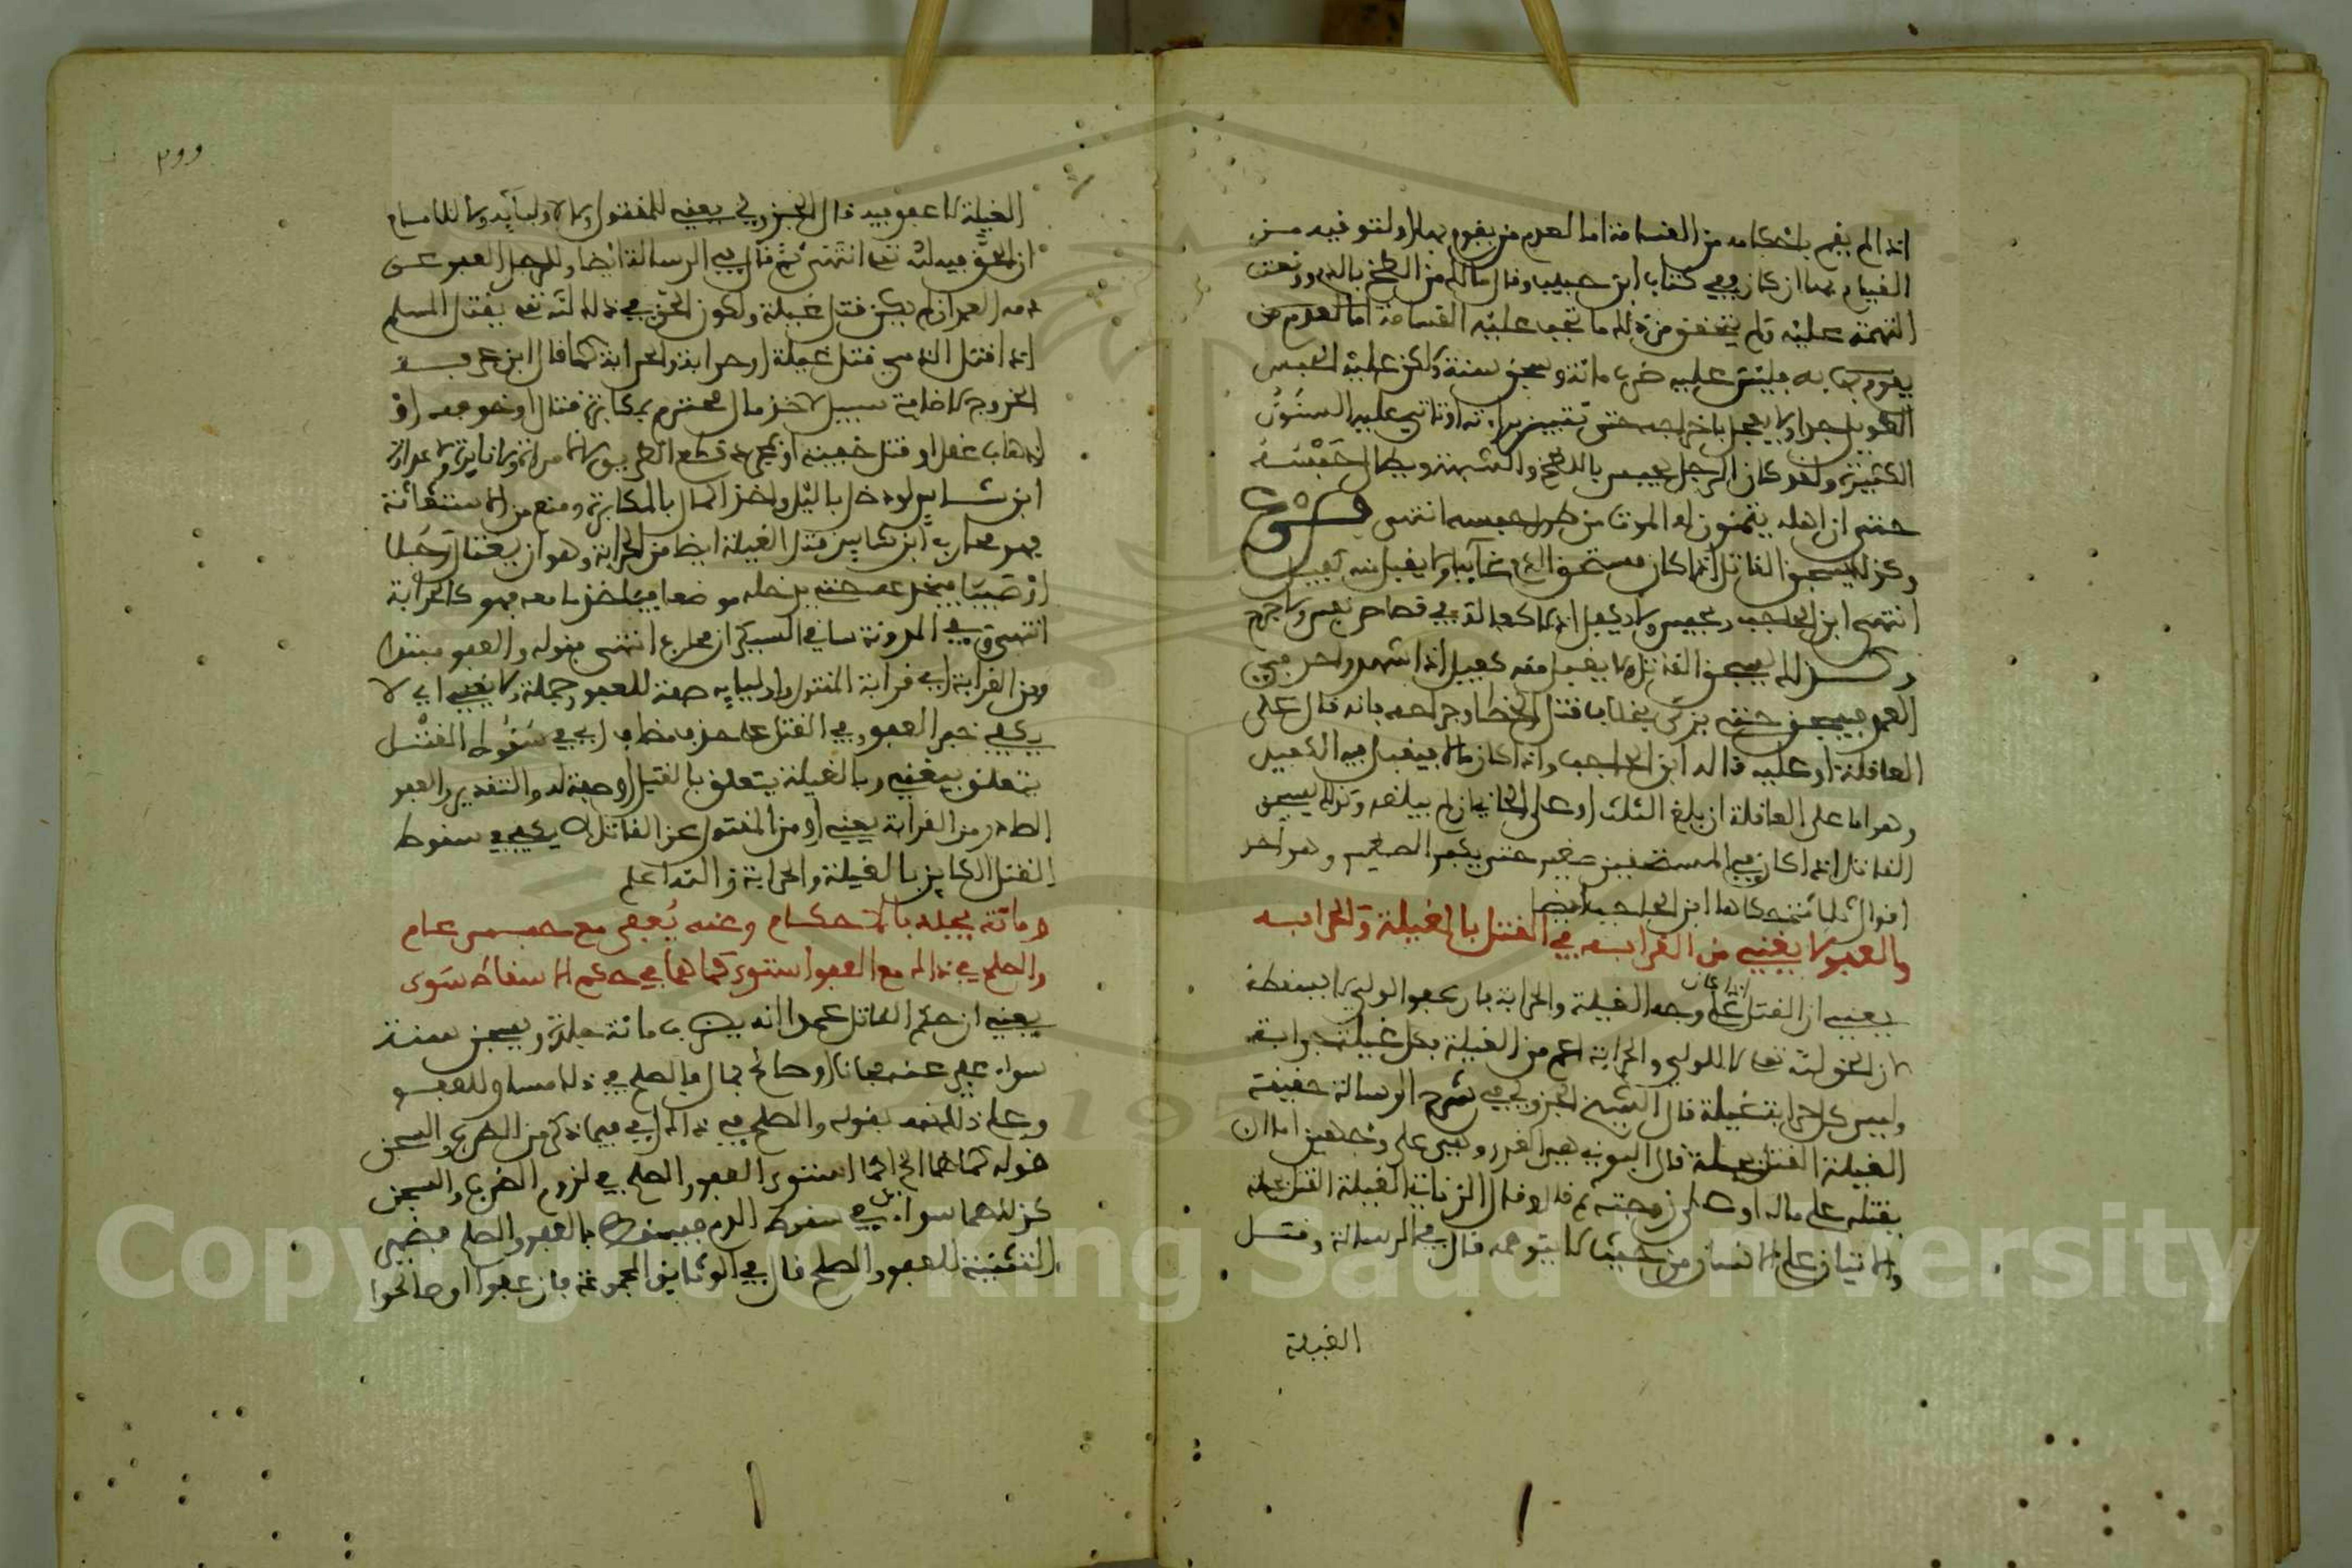 اذا لم يقم باحكامه من القسامة اما لعدم من يقوم بها او لتوقيه من
القيام بها ان كان وفي كتاب ابن حبيب وقال مالك من الطخ بالدم ووقعت
التهمة عليه ولم يتحقق من ذلك ما تجب عليه القسامة اما لعدم من
يقوم به فليس عليه ضرب مائة وسجن سنة ولكن عليه الحبس
الطويل جدا ولا يعجل باخراجه حتى تتبين براءته او تاتي عليه السنون
الكثيرة ولقد كان الرجل يحبس باللطخ والشبهة ويطال حبسه
حتى ان اهله يتمنون له الموت من طول حبسه انتهى فرع
وكذلك يسجن القاتل اذا كان مستحق الدم غائبا ولا يقبل منه كفيل
انتهى ابن الحاجب ويحبس ولا يكفل اذ لا كفالة في قصاص نفس ولا جرح
وكذلك يسجن القاتل ولا يقبل منه كفيل اذا شهد واحد في
العمد فيسجن حتى يزكى بخلاف قتل الخطا وجراحه بانه قال على
العاقلة او عليه قاله ابن الحاجب واذا كان مالا فيقبل فيه الكفيل
وهو اما على العاقلة ان بلغ الثلث او على الجاني ان لم يبلغه وكذلك يسجن
القاتل اذا كان في المستحقين صغير حتى يكبر الصغير وهو احد
اقوال ثلاثة حكاها ابن الحاجب ايضا
والعفو لا يغني من القرابه في القتل بالغيلة والحرابه
يعني ان القتل اذا كان على وجه الغيلة والحرابة فان عفو الولي لا يسقطه
لان الحق لله تعالى لا للولي والحرابة اعم من الغيلة فكل غيلة حرابة
وليس كل حرابة غيلة قال الشيخ الجزولي في شرح الرسالة حقيقة
الغيلة القتل بحيلة قال البوني هي الغدر وهي على وجهين اما ان
يقتله على ماله او على زوجته ثم قال وقال الزناتي الغيلة القتل غيلة
والاتيان على الانسان من حيث لا يتوهمه قال في الرسالة وقتل
الغيلة
٢١١
الغيلة لا عفو فيه قال الجزولي يعني للمقتول ولا لاوليائه ولا للامام
اذ الحق فيه لله تعالى انتهى ثم قال في الرسالة ايضا وللرجل العفو عن
دمه العمد ان لم يكن قتل غيلة ولكون الحق في ذلك لله تعالى يقتل المسلم
اذا قتل الذمي قتل غيلة او حرابة والحرابة كما قال ابن عرفة
الخروج لاخافة سبيل لاخذ مال محترم بمكابرة قتال او خوفه او
لذهاب عقل او قتل خفية او لمجرد قطع الطريق لا لامرة ولا نائرة ولا عداوة
ابن شاس لو دخل بالليل واخذ المال بالمكابرة ومنع من الاستغاثة
فهو محارب ابن شاس قتل الغيلة ايضا من الحرابة وهو ان يغتال رجلا
او صبيا فيخدعه حتى يدخله موضعا فياخذ ما معه فهو كالحرابة
انتهى وفي المدونة ساقي السيكران محارب انتهى فقوله والعفو مبتدا
ومن القرابة اي قرابة المقتول واوليائه صفة للعفو وجملة لا يغني اي لا
يكفي خبر العفو وفي القتل على حذف مضاف اي في سقوط القتل
يتعلق بيغني وبالغيلة يتعلق بالقتل او صفة له والتقدير والعفو
الصادر من القرابة يعني او من المقتول عن القاتل لا يكفي في سقوط
القتل الكاين بالغيلة والحرابة والله اعلم
ومائة يجلد بالاحكام وعنه يُعفى مع حبس عام
والصلح في ذاك مع العفو استوى كما هما في حكم الاسقاط سوى
يعني ان حكم القاتل عمدا انه يضرب مائة جلدة ويسجن سنة
سواء عفي عنه مجانا او صالح بمال فالصلح في ذلك مساو للعفو
وعلى ذلك نبه بقوله والصلح في ذاك اي فيما ذكر من الضرب والسجن
قوله كما هما الخ كما استوى العفو والصلح في لزوم الضرب والسجن
كذلك هما سواء في سقوط الدم فيسقط بالعفو والصلح فضمير
التثنية للعفو والصلح قال في الوثائق المجموعة فان عفوا او صالحوا
Copyright © King Saud University
1957